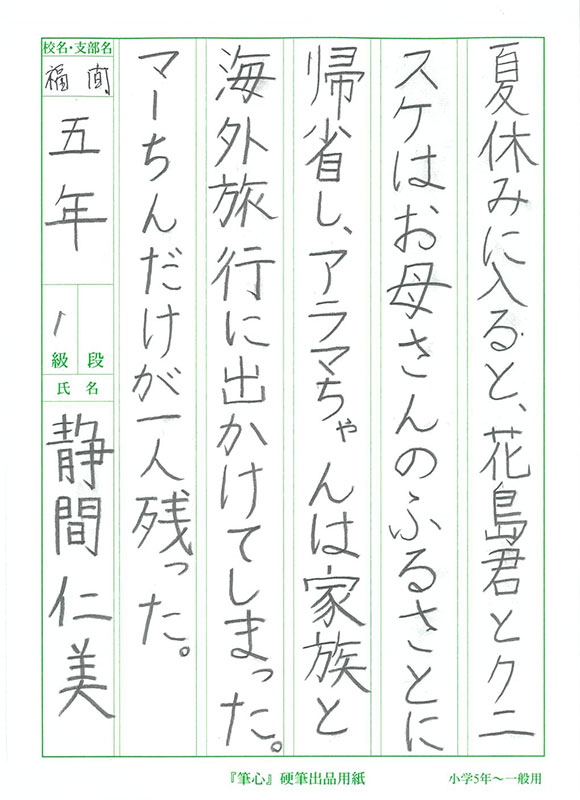 夏休みに入ると、花島君とクニ
スケはお母さんのふるさとに
帰省し、アラマちゃんは家族と
海外旅行に出かけてしまった。
マーちんだけが一人残った。
校名・支部名
福間
五年
1
級段
氏名
静間仁美
『筆心』硬筆出品用紙
小学5年〜一般用